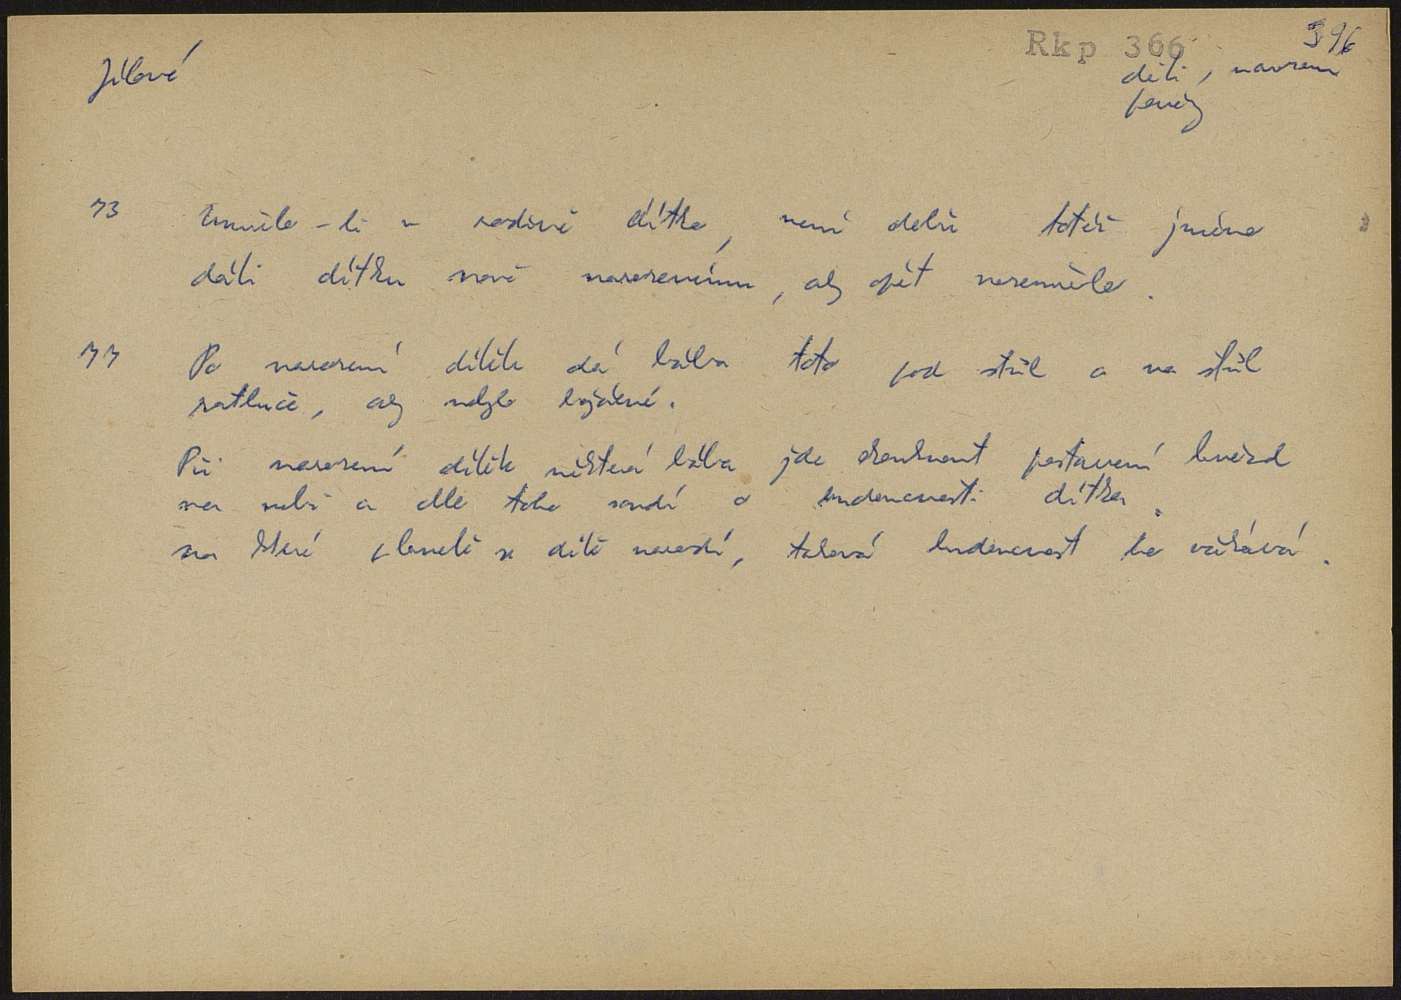 Jílové
Rkp 366
396
děti, narozen
pověry
73 Umřelo-li v rodině dítko, není dobře totéž jméno
dáti dítku nově narozenému, aby opět nezemřelo.
77 Po narození dítěte dá bába toto pod stůl a na stůl
zatluče, aby nebylo bojácné.
Při narození dítěte některá bába jde zkouknout postavení hvězd
na nebi a dle toho soudí o budoucnosti dítka.
na které planetě se dítě narodí, taková budoucnost ho očekává.